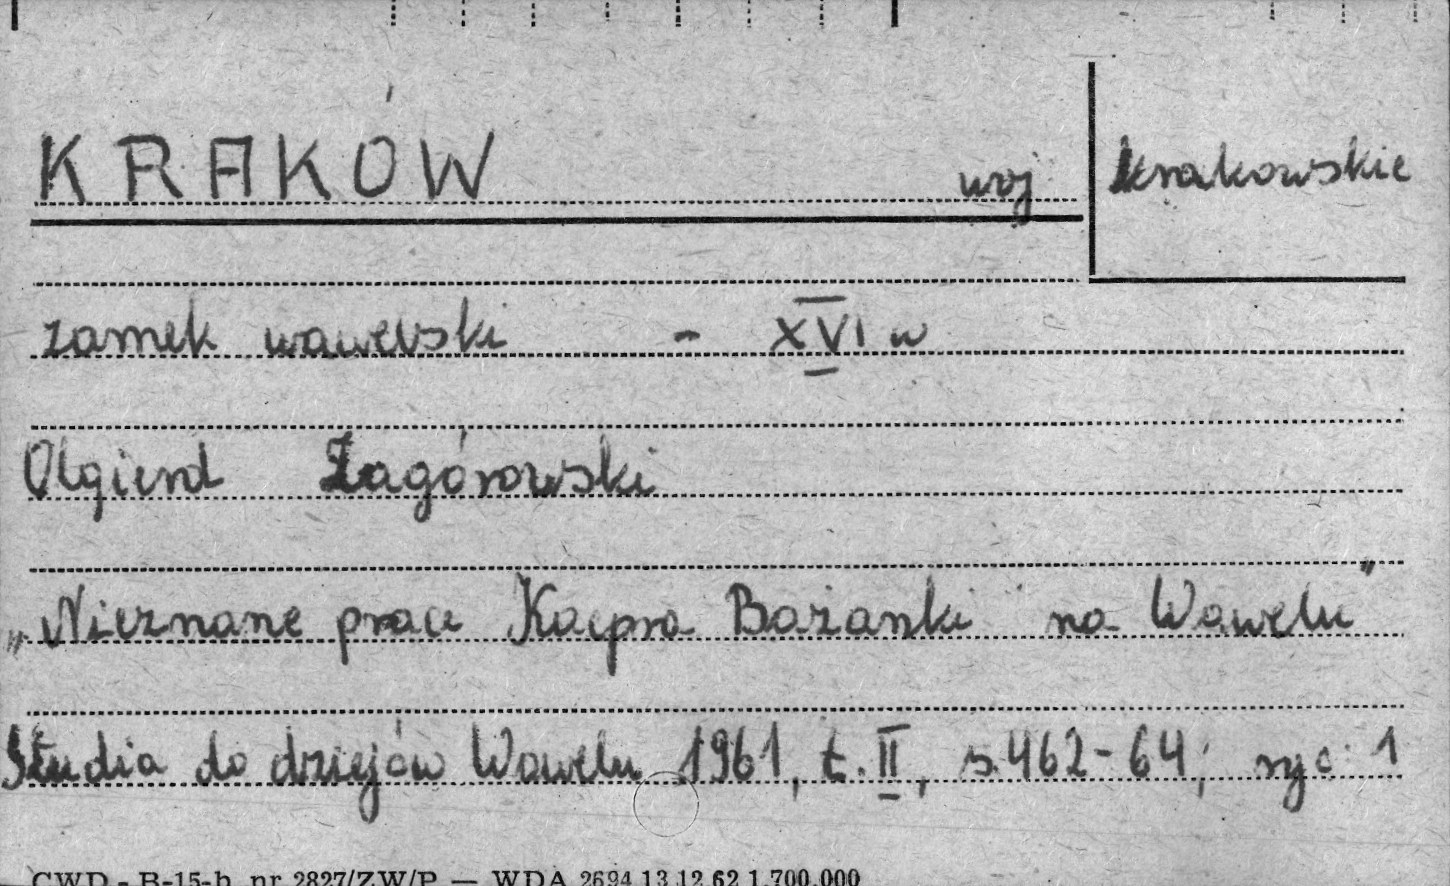 KRAKÓW woj krakowskie
zamek wawelski - XVI w
Olgierd Zagórowski
„Nieznane prace Kacpra Bażanki na Wawelu"
Studia do dziejów Wawelu 1961, t. II, s. 462-64; ryc. 1
CWD - B-15-b nr 2827/ZW/P — WDA 2694 13.12.62 1.700.000